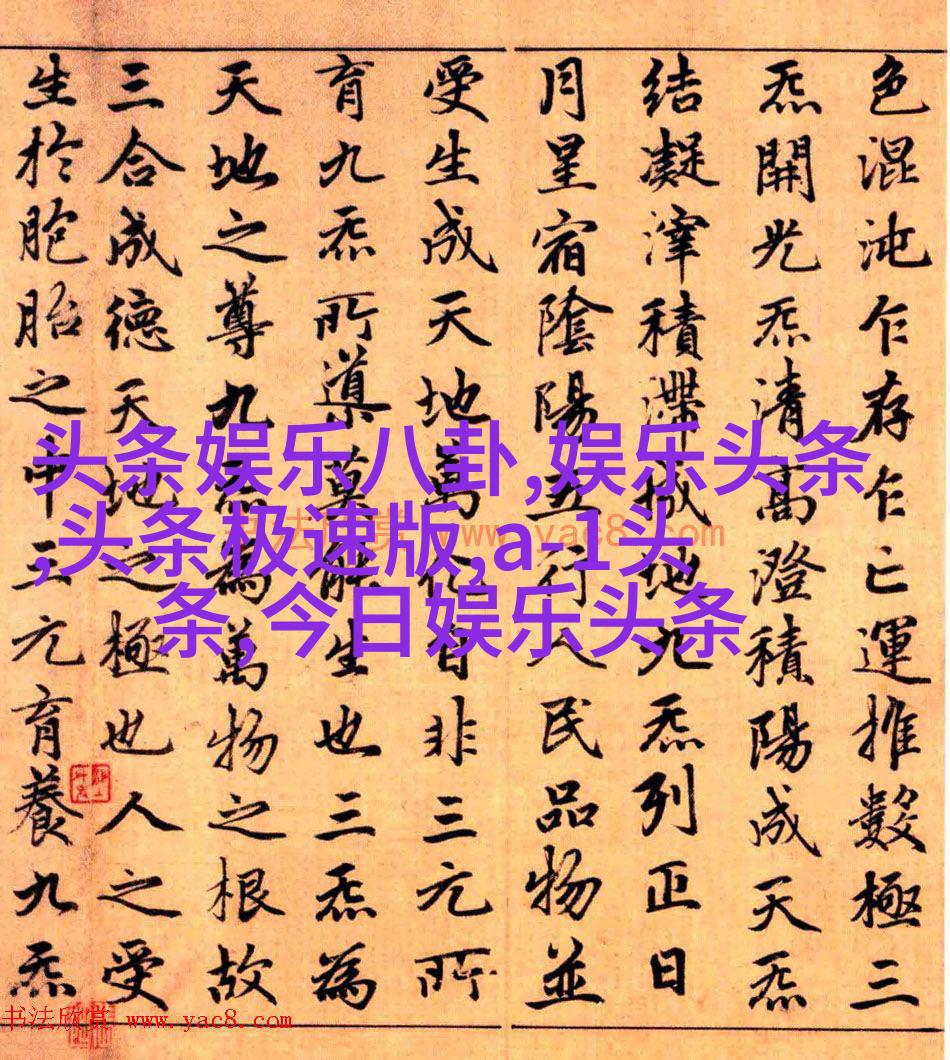 色混沌乍存乍亡運推數極三
炁開光炁清高澄積陽成天炁
結凝滓積滯成地九炁列正日
月星宿陰陽五行人民品物並
受生成天地萬化自非三元所
育九炁所導莫能生也三炁為
天地之尊九炁為萬物之根故
三合成德天地之極也人之受
生於胞胎之中三元育養九炁
头条娱乐八卦,娱乐头条
,头条极速版,a-1头
条,今日娱乐头条
书法欣赏 www.yac8.com
书法欣赏 www.yac8.com